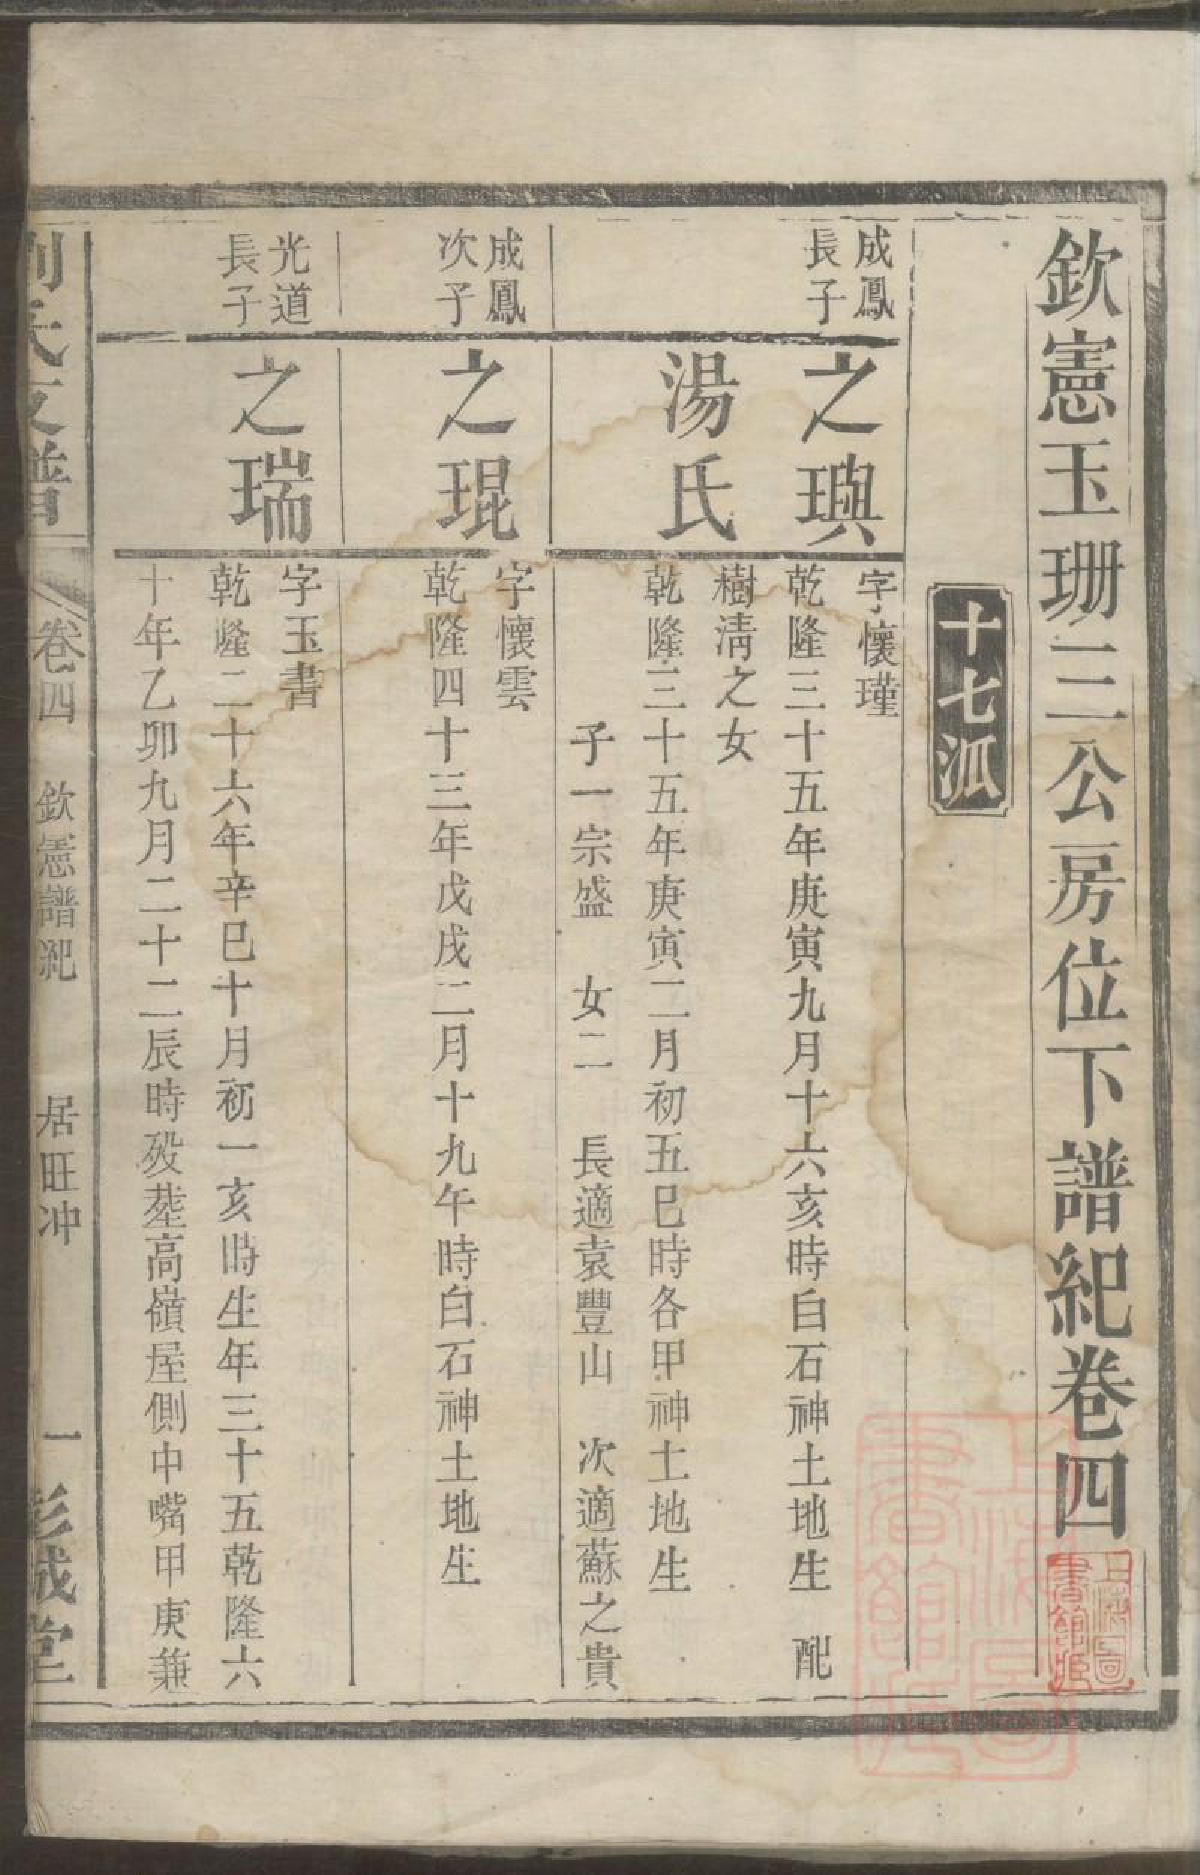 欽憲玉珊三公房位下譜紀卷四
上海圖書館藏
十七派
成鳳長子
之璵
字懷瑾
乾隆三十五年庚寅九月十六亥時白石神土地生 配
樹淸之女
湯氏
乾隆三十五年庚寅二月初五巳時各甲神土地生
子一宗盛 女二 長適袁豐山 次適蘇之貴
成鳳次子
之琨
字懷雲
乾隆四十三年戊戌二月十九午時白石神土地生
光道長子
之瑞
字玉書
乾隆二十六年辛巳十月初一亥時生年三十五乾隆六
十年乙卯九月二十二辰時殁塟高嶺屋側中嘴甲庚兼
氏支譜 卷四 欽憲譜紀 居旺冲 一 彭城堂